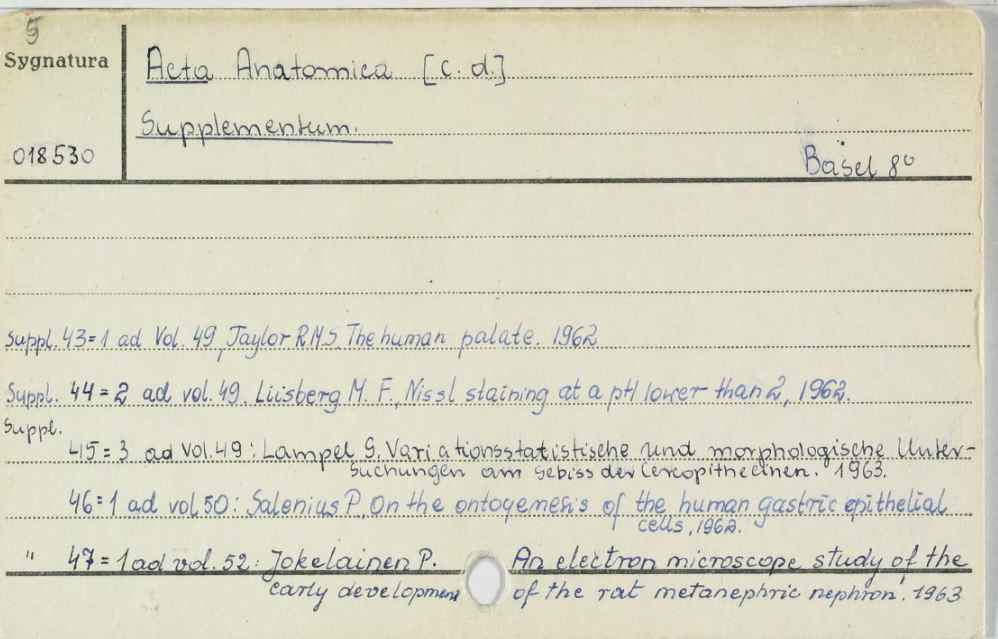 5
Sygnatura
Acta Anatomica [c. d.]
Supplementum.
018530
Basel 8°
Suppl. 43=1 ad Vol. 49, Taylor R.M.S. The human palate. 1962
Suppl. 44=2 ad vol. 49. Liisberg M. F., Nissl staining at a pH lower than 2, 1962.
Suppl.
45=3 ad Vol. 49: Lampel G. Variationsstatistische und morphologische Unter-
suchungen am Gebiss der Cercopithecinen. 1963.
46=1 ad vol 50: Salenius P. On the ontogenesis of the human gastric epithelial
cells, 1962.
" 47=1 ad vol. 52: Jokelainen P. An electron microscope study of the
early development of the rat metanephric nephron. 1963